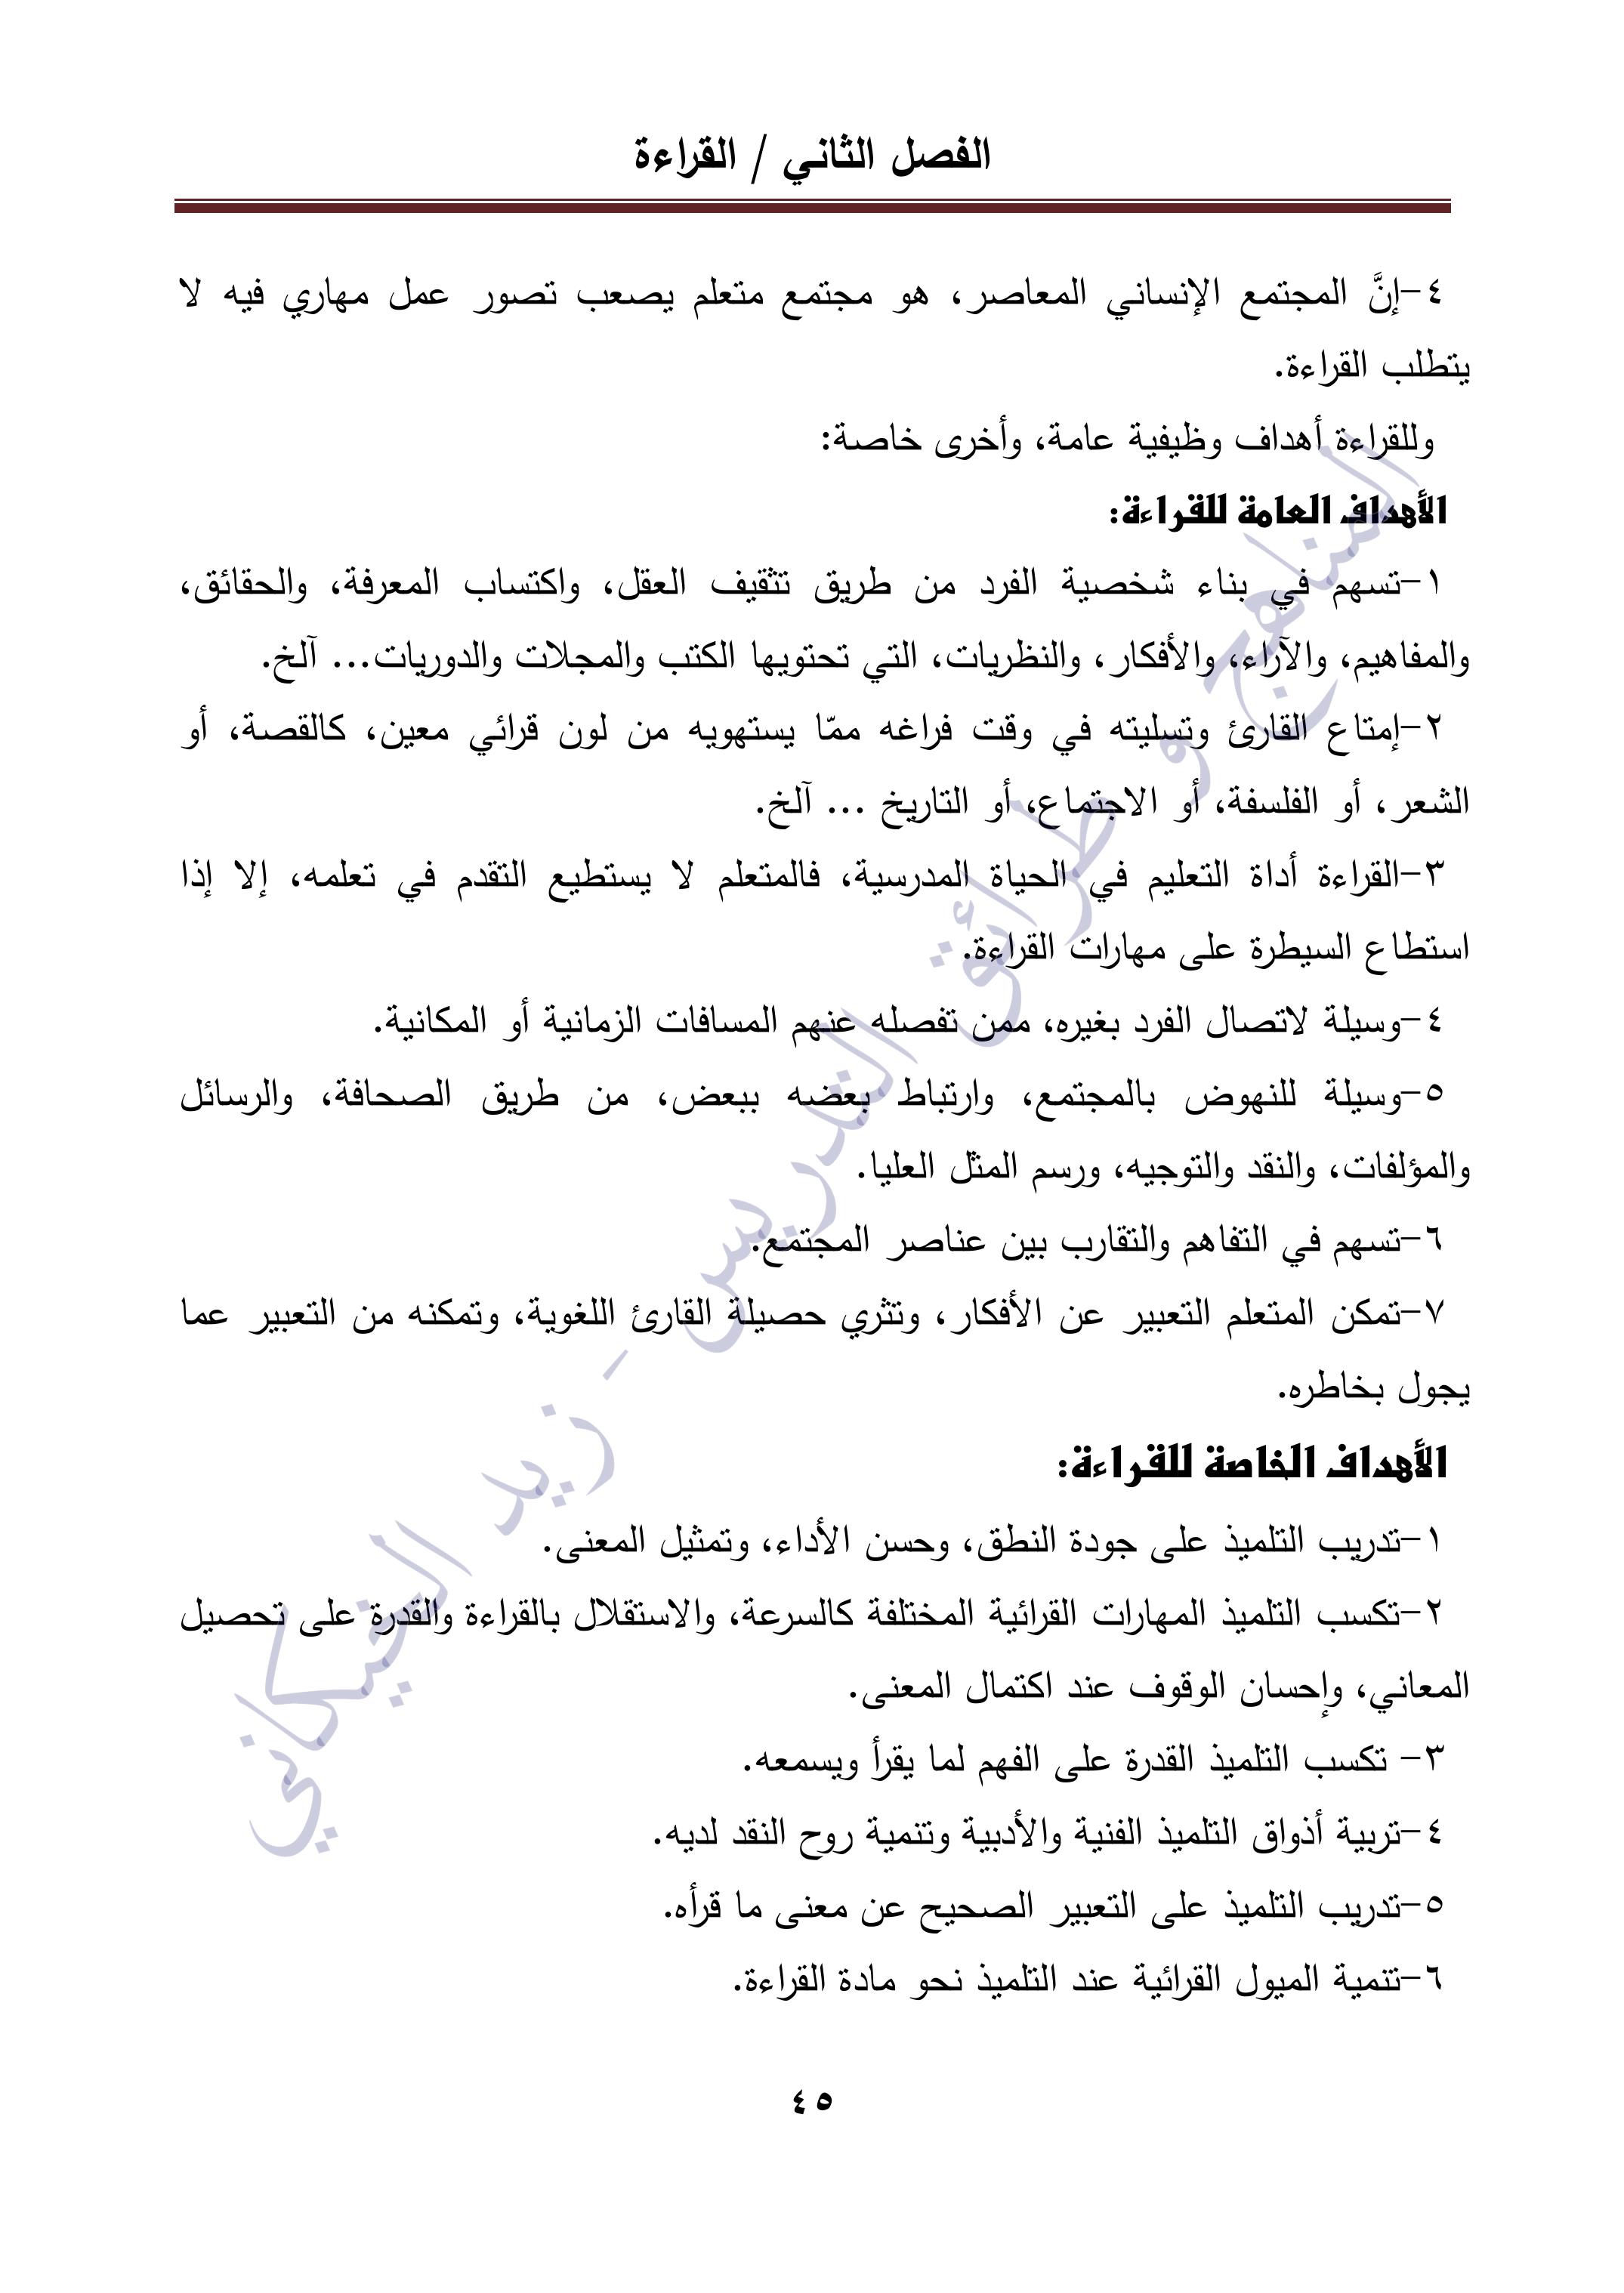 الفصل الثاني / القراءة
٤-إنَّ المجتمع الإنساني المعاصر، هو مجتمع متعلم يصعب تصور عمل مهاري فيه لا
يتطلب القراءة.
وللقراءة أهداف وظيفية عامة، وأخرى خاصة:
الأهداف العامة للقراءة:
١-تسهم في بناء شخصية الفرد من طريق تثقيف العقل، واكتساب المعرفة، والحقائق،
والمفاهيم، والآراء، والأفكار، والنظريات، التي تحتويها الكتب والمجلات والدوريات... آلخ.
٢-إمتاع القارئ وتسليته في وقت فراغه ممّا يستهويه من لون قرائي معين، كالقصة، أو
الشعر، أو الفلسفة، أو الاجتماع، أو التاريخ ... آلخ.
٣-القراءة أداة التعليم في الحياة المدرسية، فالمتعلم لا يستطيع التقدم في تعلمه، إلا إذا
استطاع السيطرة على مهارات القراءة.
٤-وسيلة لاتصال الفرد بغيره، ممن تفصله عنهم المسافات الزمانية أو المكانية.
٥-وسيلة للنهوض بالمجتمع، وارتباط بعضه ببعض، من طريق الصحافة، والرسائل
والمؤلفات، والنقد والتوجيه، ورسم المثل العليا.
٦-تسهم في التفاهم والتقارب بين عناصر المجتمع.
٧-تمكن المتعلم التعبير عن الأفكار، وتثري حصيلة القارئ اللغوية، وتمكنه من التعبير عما
يجول بخاطره.
الأهداف الخاصة للقراءة:
١-تدريب التلميذ على جودة النطق، وحسن الأداء، وتمثيل المعنى.
٢-تكسب التلميذ المهارات القرائية المختلفة كالسرعة، والاستقلال بالقراءة والقدرة على تحصيل
المعاني، وإحسان الوقوف عند اكتمال المعنى.
٣- تكسب التلميذ القدرة على الفهم لما يقرأ ويسمعه.
٤-تربية أذواق التلميذ الفنية والأدبية وتنمية روح النقد لديه.
٥-تدريب التلميذ على التعبير الصحيح عن معنى ما قرأه.
٦-تنمية الميول القرائية عند التلميذ نحو مادة القراءة.
٤٥
المناهج و طرائق التدريس - زيد الغيكاني